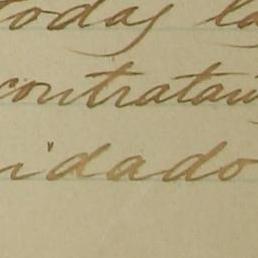 todas la
contratan
idado